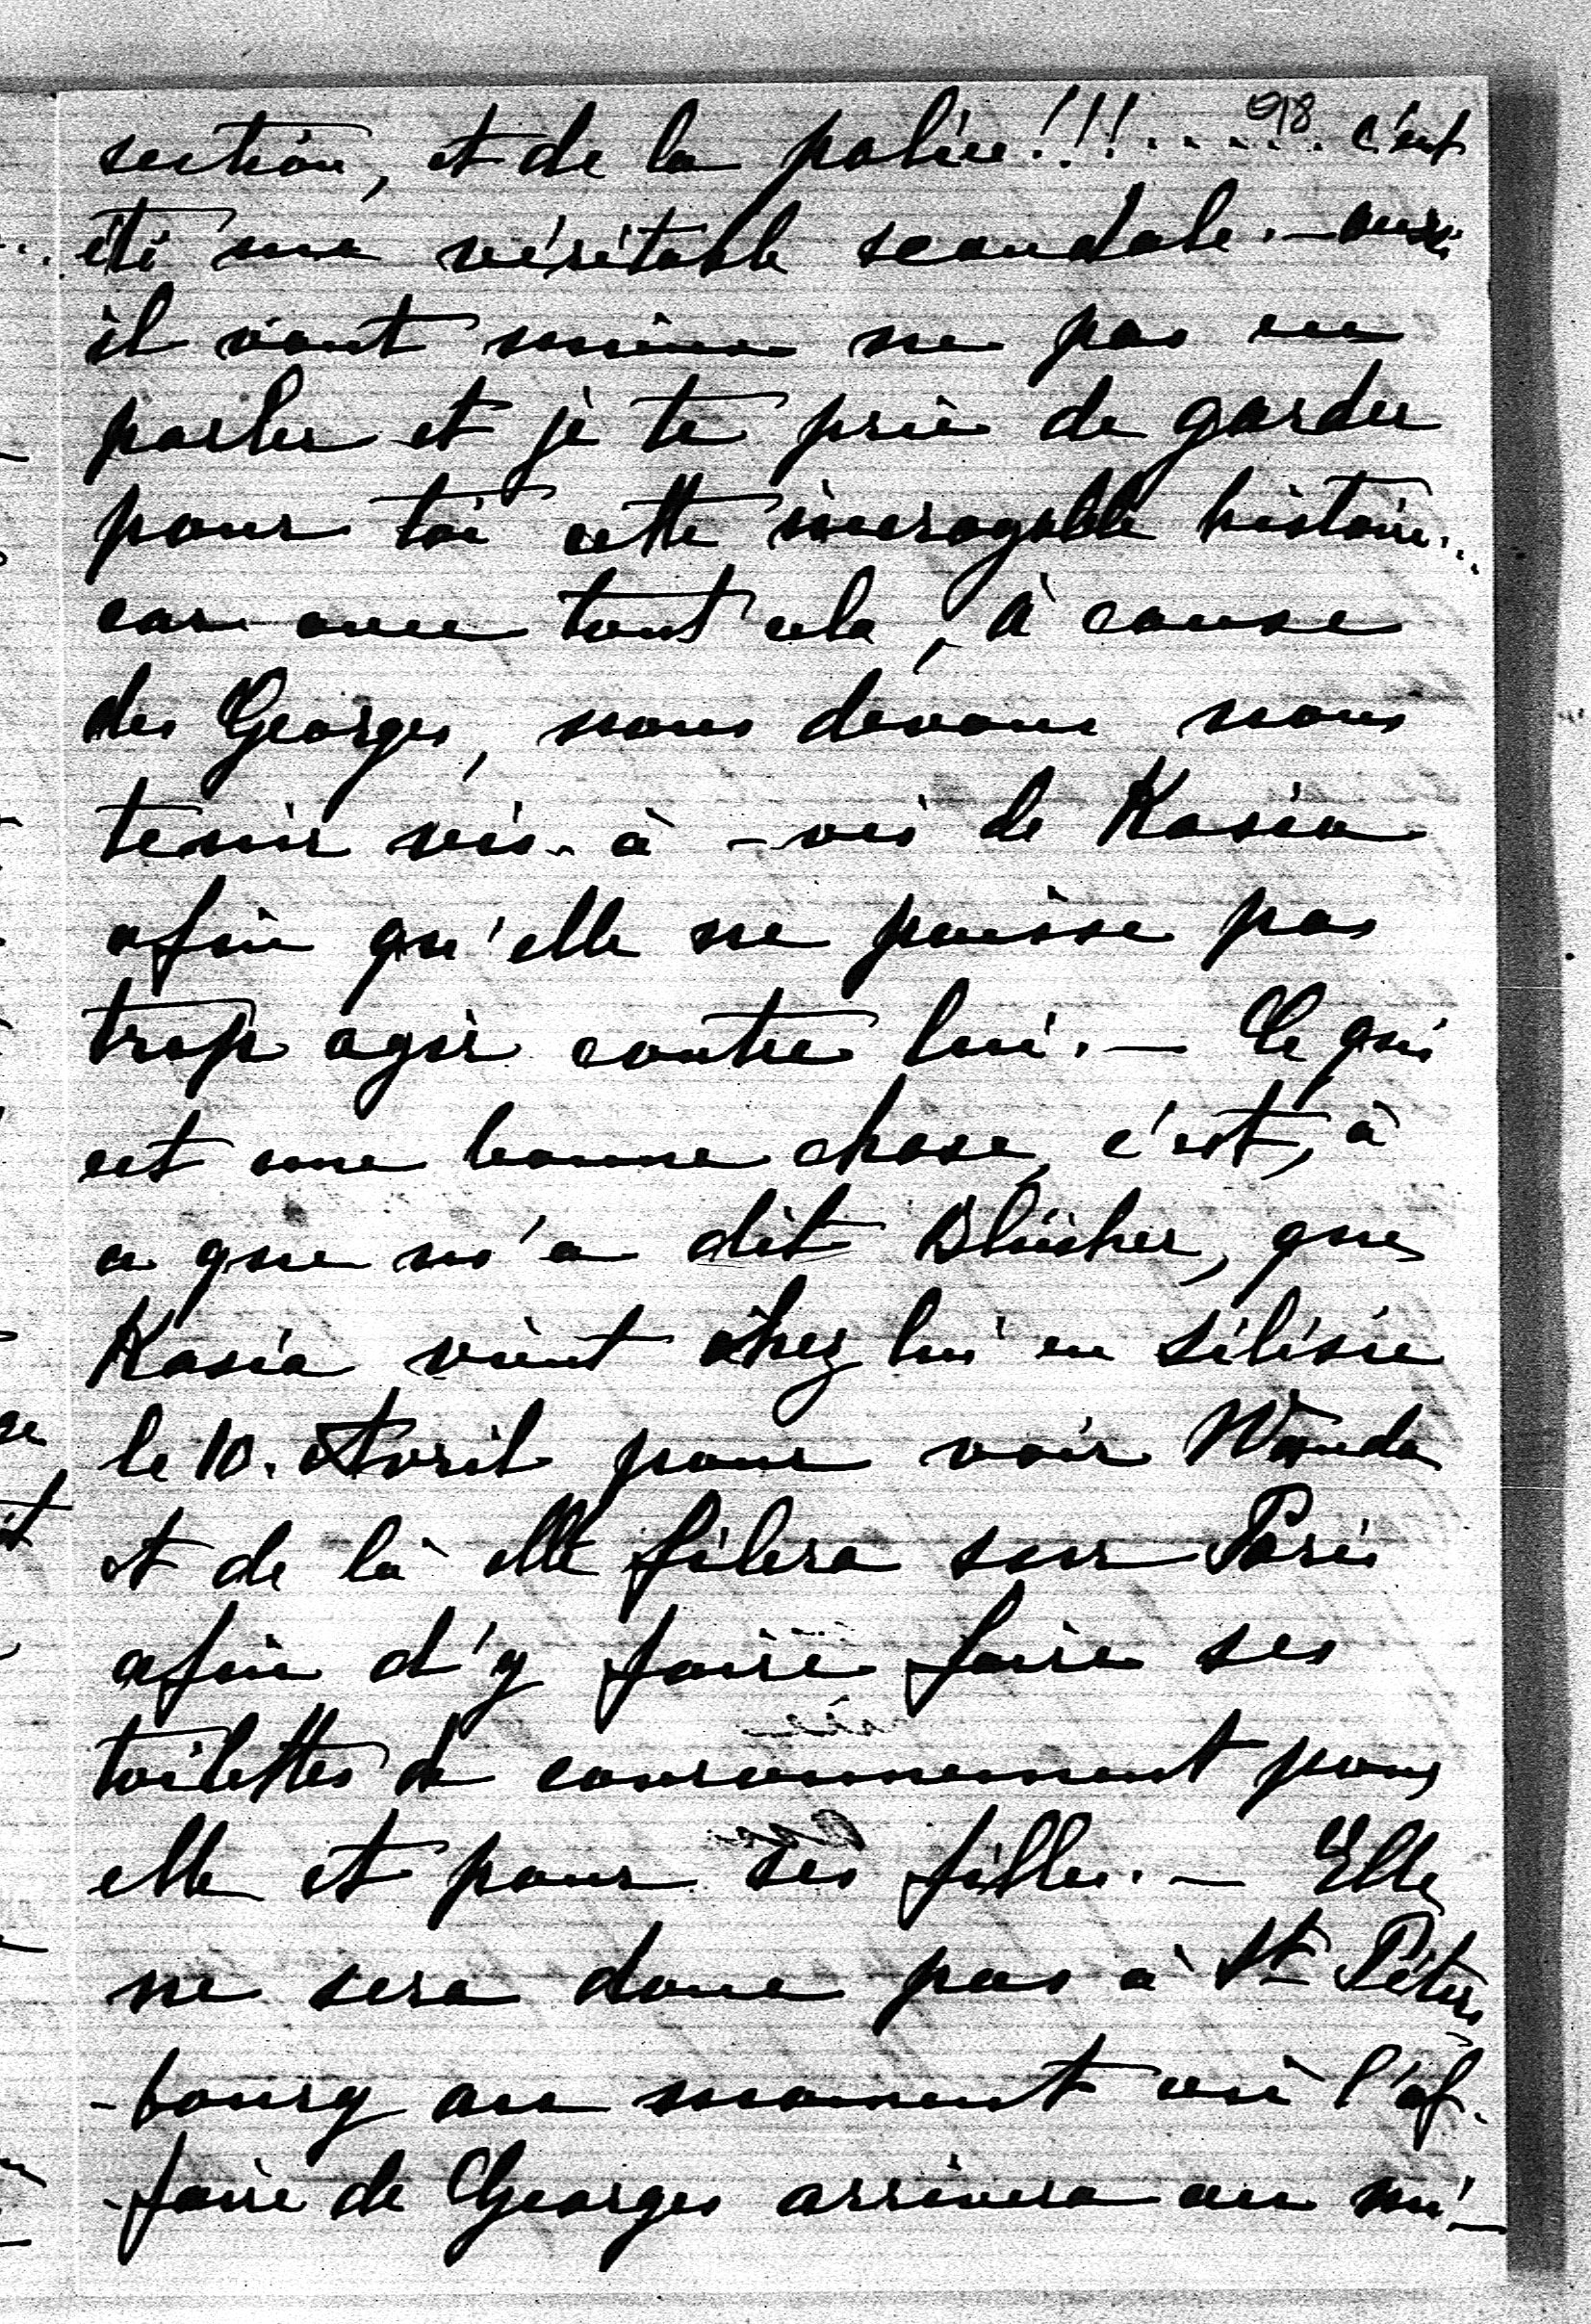 section, et de la police!!!...... c'eut
918
été une véritable scandale. — aussi
il vaut mieux ne pas en
parler et je te prie de garder
pour toi cette incroyable histoire...
car avec tout cela, à cause
des Georges, nous devons nous
tenir vis-à-vis de Kasia
afin qu'elle ne puisse pas
trop agir contre lui. — Ce qui
est une bonne chose, c'est, à
ce que m'a dit Blücher, que
Kasia vient chez lui en Silésie
le 10. Avril pour voir Wanda
et de là elle filera sur Paris
afin d'y faire faire ses
toilettes de couronnement pour
elle et pour ses filles. — Elle
ne sera donc pas à St Péters
-bourg au moment où l'af-
-faire de Georges arrivera au mi-